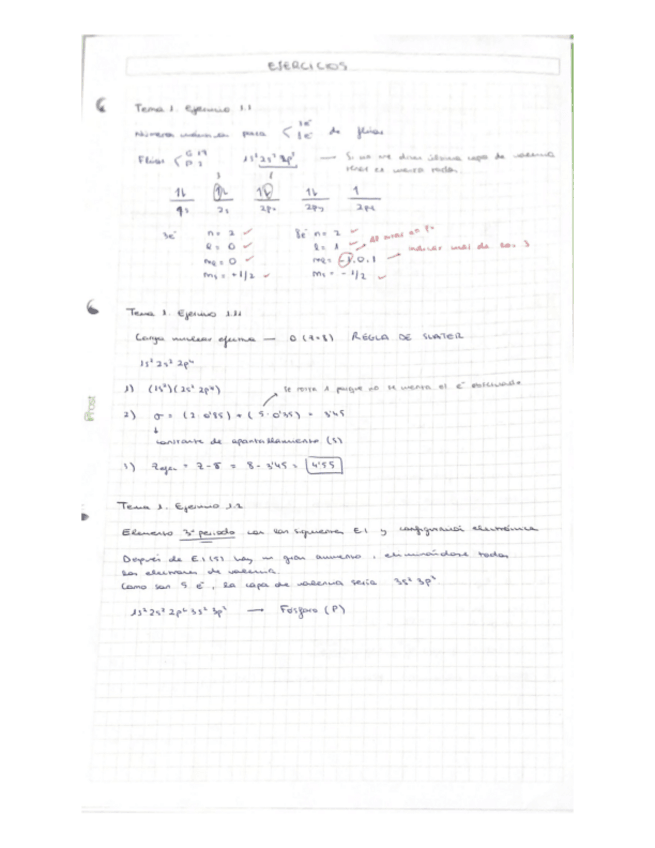 EJERCICIOS
Tema 1. Ejercicio 1.1
Números cuánticos para 3e⁻ 8e⁻ de flúor
Flúor G 17 P 2 1s² 2s² 2p⁵ — Si no me dicen última capa de valencia
1s 2s 2px 2py 2pz
3e⁻ n = 2 8e⁻ n = 2
l = 0 l = 1
ml = 0 ml = -1, 0, 1 indicar una de las 3
ms = +1/2 ms = -1/2
Tema 1. Ejercicio 1.11
Carga nuclear efectiva — O (Z=8) REGLA DE SLATER
1s² 2s² 2p⁴
1) (1s²) (2s² 2p⁴) se resta 1 porque no se cuenta el e⁻
2) σ = (2·0'85) + (5·0'35) = 3'45
constante de apantallamiento (S)
3) Zefec = Z - S = 8 - 3'45 = 4'55
Tema 1. Ejercicio 1.2
Elemento 3º periodo con las siguientes E.I y configuración electrónica
Después de E.I (5) hay un gran aumento, eliminándose todos
los electrones de valencia.
Como son 5 e⁻, la capa de valencia sería 3s² 3p³
1s² 2s² 2p⁶ 3s² 3p³ → Fósforo (P)